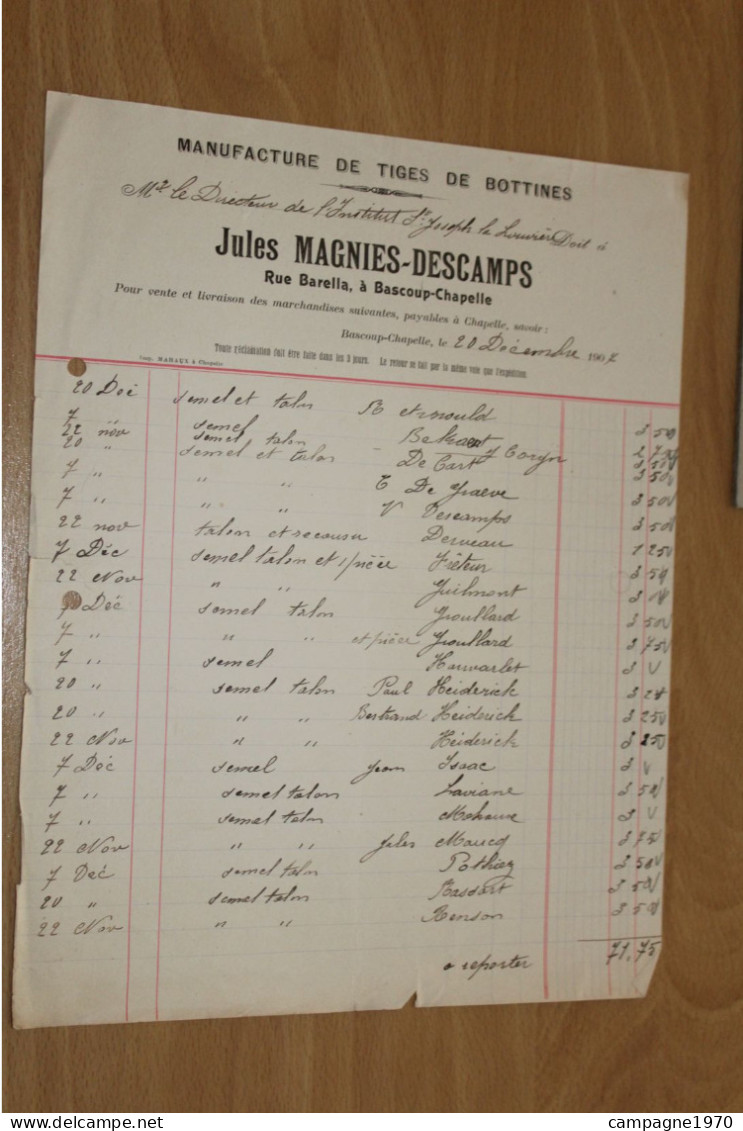 MANUFACTURE DE TIGES DE BOTTINES
Mr le Directeur de l'Institut St Joseph la Louvière Doit à
Jules MAGNIES-DESCAMPS
Rue Barella, à Bascoup-Chapelle
Pour vente et livraison des marchandises suivantes, payables à Chapelle, savoir:
Bascoup-Chapelle, le 20 Décembre 190
Toute réclamation doit être faite dans les 3 jours. Le retour se fait par la même voie que l'expédition.
Imp. MAHAUX à Chapelle
20 Déc semel et talon
7 semel 3 50
22 nov semel talon
20 " semel et talon De Cart 3 50
7 " " " De Graeve 3 50
7 " " " V Descamps 3 50
22 nov talon et recousu Derveau 1 25
7 Déc semel talon et 1 pièce 3 50
22 Nov " " Guilmont 3
Déc semel talon Groullard 3 50
7 " " " et pièce Groullard 3 75
7 " semel Harvarlet 3
20 " semel talon Paul Heiderick 3
20 " " " Bertrand Heiderick 3 250
22 Nov " " Heiderick 3 250
7 Déc semel Jean Isaac 3
7 " semel talon Laviane 3 50
7 " semel talon 3
22 Nov " " Jules Maucq 3 75
7 Déc semel talon Pothiez 3 50
20 " semel talon Rassart 3 50
22 Nov " " Renson 3 50
a reporter 71,75
campagne1970